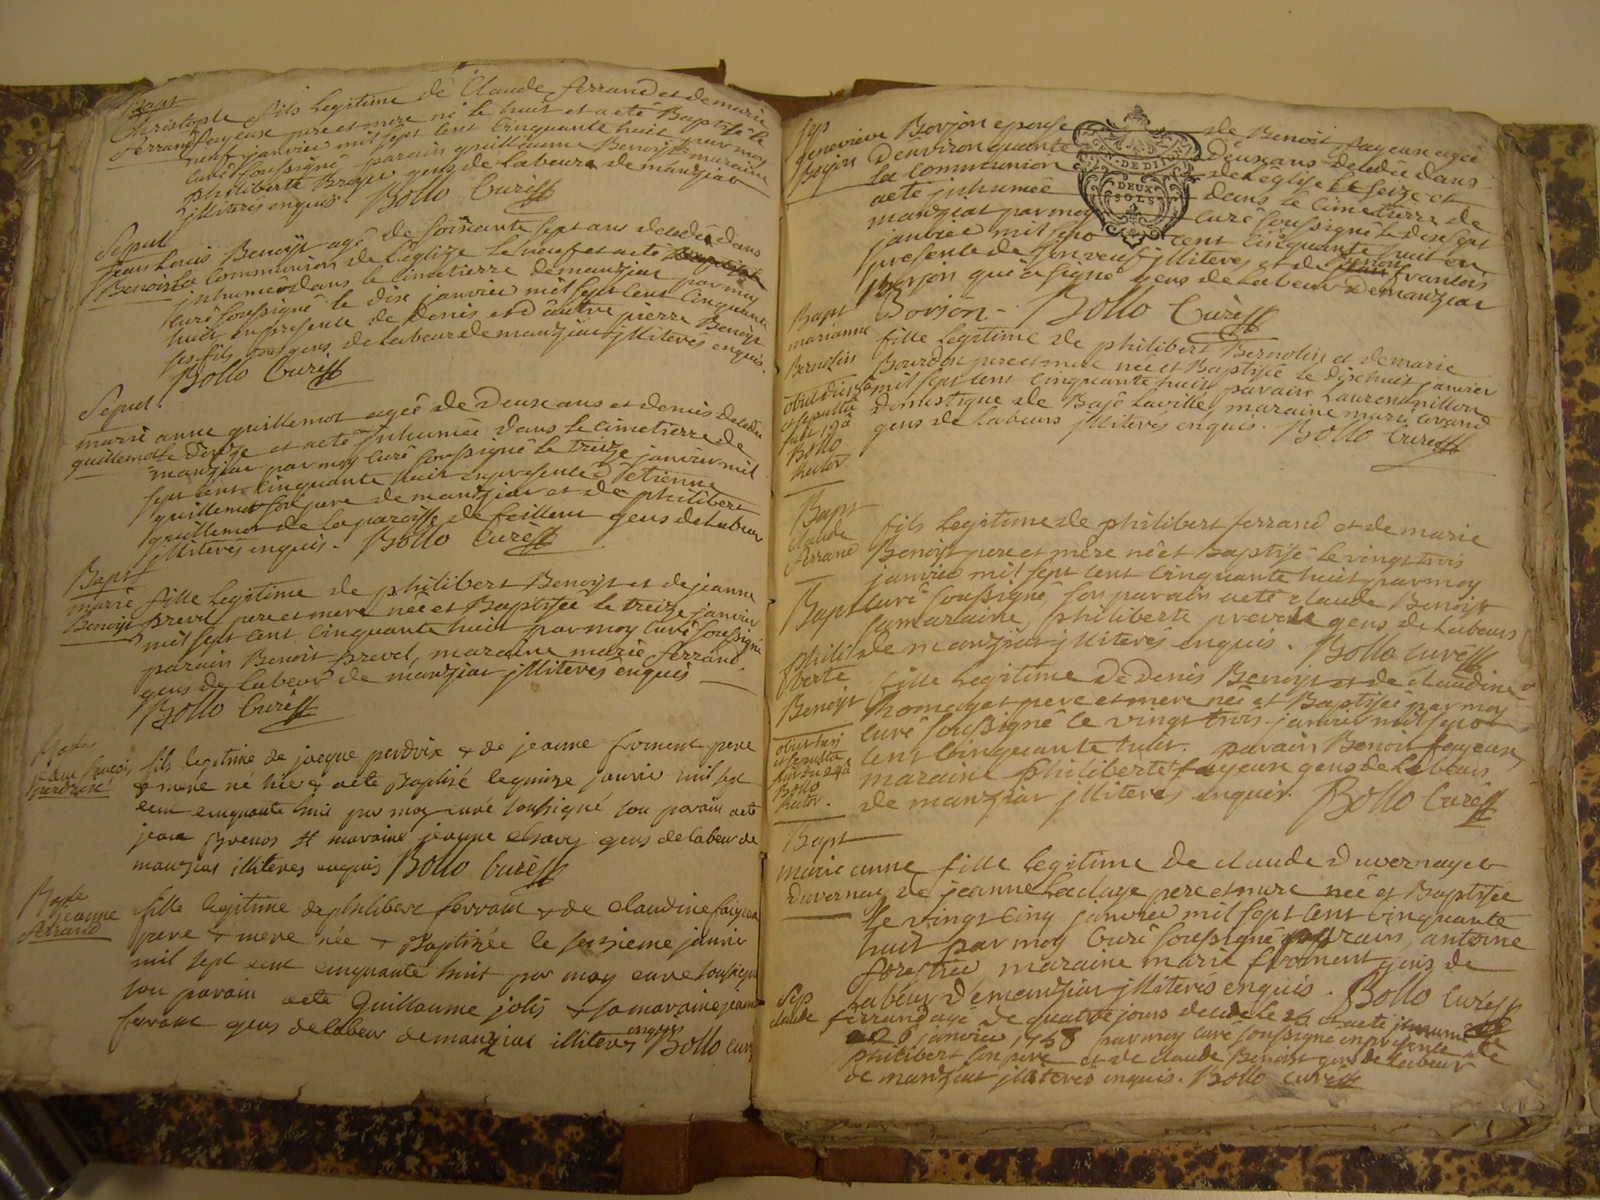 Bapt
Christophe fils legitime de Claude ferrand et de marie
ferrand fayeux pere et mere né le huit et acté Baptisé le
neuf janvier mil sept cent cinquante huit par moy
curé soussigné parain guillaume Benoist maraine
philiberte gens de labeurs de manziat
jlliterés enquis. Bollo Curé
Sepul
jean Louis Benoist agé de soixante sept ans decedé dans
Benoist la Communion de l'eglize le neuf et acté
jnhumé dans le cimetierre de manziat par moy
Curé soussigné le dix janvier mil sept cent cinquante
huit en presente de denis et d'autre pierre Benoist
ses fils gens de labeur de manziat jlliterés enquis.
Bollo Curé
Sepul.
marie anne guillemot agée de deux ans et demis decedée
guillemot le douze et acté jnhumée dans le cimetierre de
manziat par moy Curé soussigné le treize janvier mil
sept cent cinquante huit en presente d'etienne
guillemot son pere de manziat et de philibert
guillemot de la paroisse de feillens gens de labeur
jlliterés enquis. Bollo Curé
Bapt
marie fille legitime de philibert Benoist et de jeanne
Benoist prevel pere et mere née et Baptisée le treize janvier
mil sept cent cinquante huit par moy Curé soussigné
parain Benoit prevel, maraine marie ferrand
gens de labeur de manziat jlliterés enquis
Bollo Curé
fils legitime de jacque perdrix & de jeanne froment pere
perdrix & mere né hier & acte Baptisé le quinze janvier mil sept
cent cinquante huit par moy curé soussigné son parain acte
jean Brenos & maraine jeanne gens de labeur de
manziat illiteres enquis Bollo Curé
Bapte
jeanne fille legitime de philibert ferrant & de claudine
ferrand pere & mere née & Baptisée le sezieme janvier
mil sept cent cinquante huit par moy curé soussigné
son parain acte Guillaume jolis & sa maraine jeanne
ferrant gens de labeur de manziat illiteres enquis Bollo Curé
Sep
genevieve Borjon epouse de Benoist fayeux agée
Borjon d'environ quarante deux ans decedée dans
la Communion de l'eglise le seize et
acté jnhumée dans le cimetierre de
manziat par moy Curé soussigné le dix sept
janvier mil sept cent cinquante huit en
presente de son veuf jlliterés et de Benoit francois
Borjon qui a signé gens de labeur de manziat
Borjon - Bollo Curé
GEN. DE DIJON
DEUX
SOLS
Bapt
marianne fille legitime de philibert Bernolin et de marie
Bernolin Bourdon pere et mere née et Baptisée le dix huit janvier
mil sept cent cinquante huit parain Laurent millon
domestique de Bagé laville, maraine marie
gens de labeurs jlliterés enquis. Bollo Curé
obiit die
et sepulta
fuit 19a
Bollo
Rector
Bapt
claude fils legitime de philibert ferrand et de marie
ferrand Benoist pere et mere né et Baptisé le vingt trois
janvier mil sept cent cinquante huit par moy
Curé soussigné, son parain acté claude Benoist
sa maraine, philiberte prevel gens de labeurs
de manziat jlliterés enquis. Bollo Curé
Bapt
phili
berte fille legitime de Denis Benoist et de claudine
Benoist pere et mere née et Baptisée par moy
curé soussigné le vingt trois janvier mil sept
cent cinquante huit. parain Benoist fayeux,
maraine philiberte fayeux gens de labeurs
de manziat jlliterés enquis. Bollo Curé
Bollo
Rector.
Bapt
marie anne fille legitime de claude Duvernay et
Duvernay de jeanne pere et mere née et Baptisée
le vingt cinq janvier mil sept cent cinquante
huit par moy Curé soussigné parain, antoine
maraine marie froment gens de
Labeur de manziat jlliterés enquis. Bollo Curé
Sep
claude ferrand agé de quatre jours decedé le 26 et acté jnhumé
26 janvier 1758 par moy curé soussigné en presente de
philibert son pere et de claude Benoist gens de labeur
de manziat jlliterés enquis. Bollo Curé